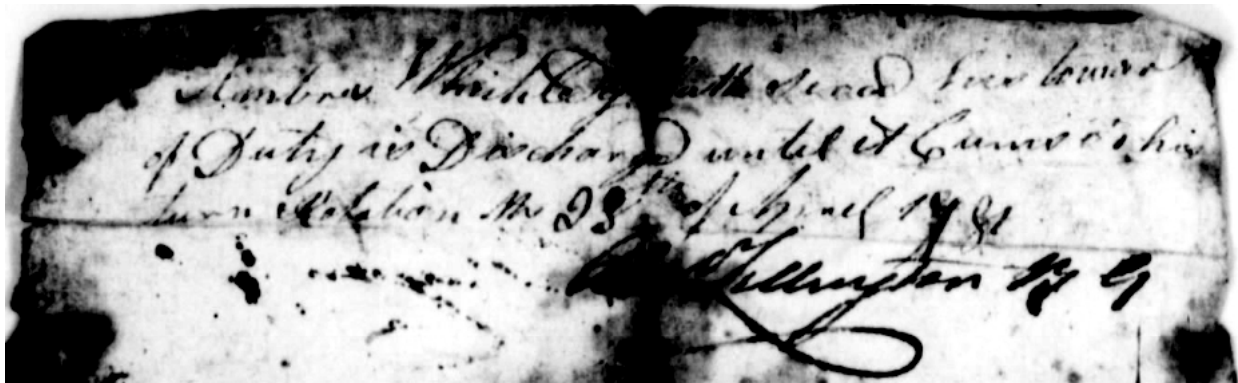 Ambros Whitley hath served his tower
of Duty is Discharged until it Cums to his
turn Rotation the 23th of April 1781
Lillington B G